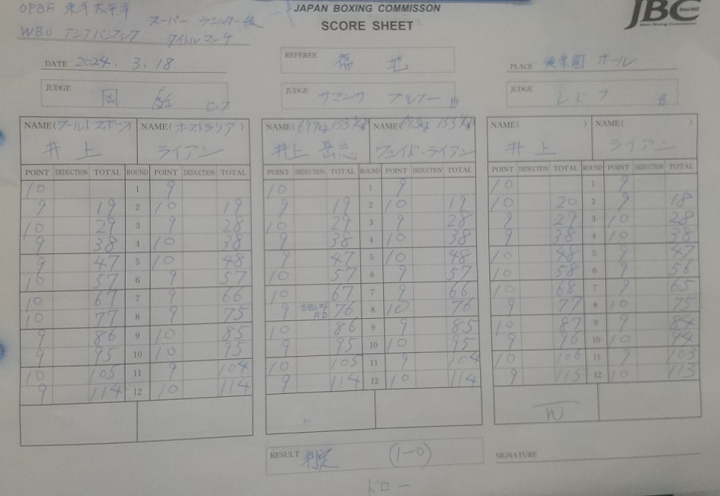 OPBF 東洋太平洋 スーパー ウェルター級
WBO アジアパシフィック タイトルマッチ
JAPAN BOXING COMMISSON
SCORE SHEET
JBC
DATE 2024. 3. 18
REFEREE 福地
PLACE 後楽園 ホール
JUDGE
JUDGE
JUDGE
NAME(ワールドスポーツ) NAME(オーストラリア)
井上 ライアン
NAME NAME
井上 岳志 ライアン
NAME( ) NAME( )
井上 ライアン
POINT DEDUCTION TOTAL ROUND POINT DEDUCTION TOTAL
10 1 9
9 19 2 10 19
10 29 3 9 28
9 38 4 10 38
9 47 5 10 48
10 57 6 9 57
10 67 7 9 66
10 77 8 9 75
9 86 9 10 85
9 95 10 10 95
10 105 11 9 104
9 114 12 10 114
POINT DEDUCTION TOTAL ROUND POINT DEDUCTION TOTAL
10 1 9
9 19 2 10 19
10 29 3 9 28
9 38 4 10 38
9 47 5 10 48
10 57 6 9 57
10 67 7 9 66
9 76 8 10 76
10 86 9 9 85
9 95 10 10 95
10 105 11 9 104
9 114 12 10 114
POINT DEDUCTION TOTAL ROUND POINT DEDUCTION TOTAL
10 1 9
20 2 9 18
9 29 3 10 28
9 38 4 10 38
10 48 5 9 47
10 58 6 9 56
10 68 7 9 65
9 77 8 10 75
10 87 9 9 84
9 96 10 10 94
10 106 11 9 103
9 115 12 10 113
W
RESULT 判定 (1-0)
SIGNATURE
ドロー